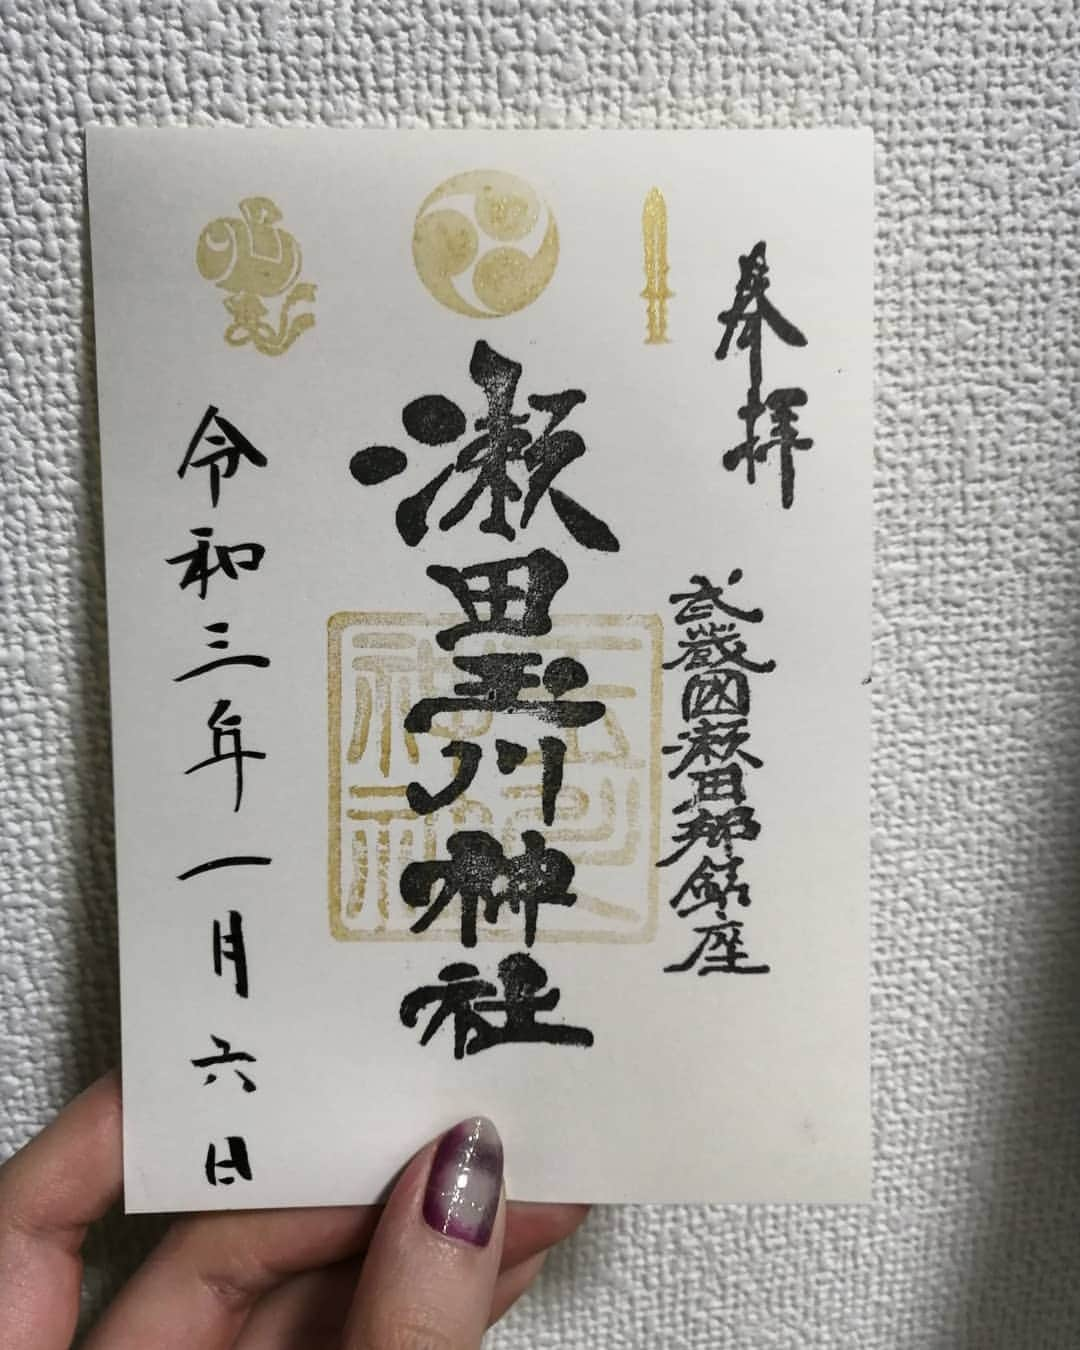 奉拝
武蔵國瀬田郷鎮座
瀬田玉川神社
令和三年一月六日